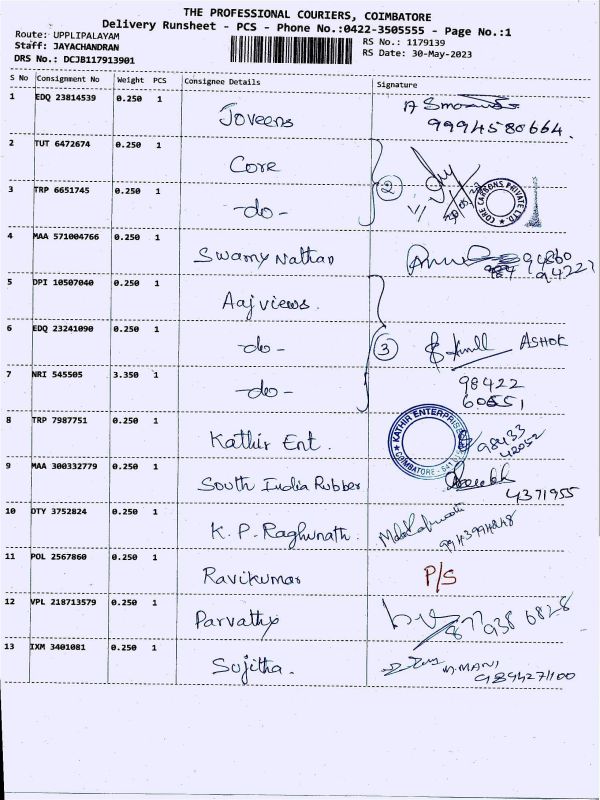 THE PROFESSIONAL COURIERS, COIMBATORE
Delivery Runsheet - PCS - Phone No.:0422-3505555 - Page No.:1
Route: UPPLIPALAYAM
Staff: JAYACHANDRAN
DRS No.: DCJB117913901
RS No.: 1179139
RS Date: 30-May-2023
S No Consignment No Weight PCS Consignee Details Signature
1 EDQ 23814539 0.250 1 Joveens
9994580664.
2 TUT 6472674 0.250 1 Core
3 TRP 6651745 0.250 1 -do-
2
CORE CARBONS PRIVATE LTD.
4 MAA 571004766 0.250 1 Swamy Nathan
94860
94227
5 DPI 10507040 0.250 1 Aajviews.
6 EDQ 23241090 0.250 1 -do- 3 ASHOK
7 NRI 545505 3.350 1 -do- 98422
60551
8 TRP 7987751 0.250 1 Kathir Ent.
KATHIR ENTERPRISES
COIMBATORE
98433
42052
9 MAA 300332779 0.250 1 South India Rubber
4371955
10 OTY 3752824 0.250 1 K. P. Raghunath.
11 POL 2567860 0.250 1 Ravikumar P/S
12 VPL 218713579 0.250 1 Parvathy
13 IXM 3401081 0.250 1 Sujitha. MANI